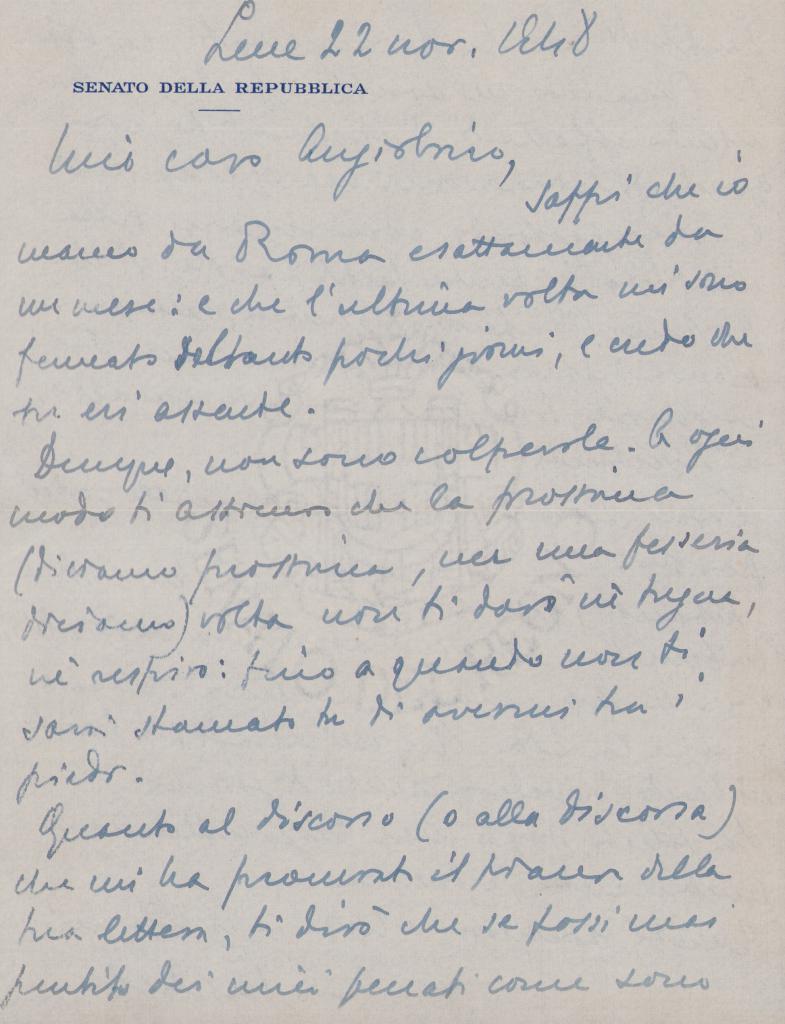 Lene 22 nov. 1948
SENATO DELLA REPUBBLICA
Mio caro Angiolino,
sappi che io
manco da Roma esattamente da
un mese: e che l'ultima volta mi sono
fermato soltanto pochi giorni, e credo che
tu eri assente.
Dunque, non sono colpevole. A ogni
modo ti assicuro che la prossima
(diciamo prossima, una fesseria
diciamo) volta non ti darò nè tregua,
nè respiro: fino a quando non ti
sarai stancato tu di avermi tra i
piedi.
Quanto al discorso (o alla discorsa)
che mi ha procurato il piacer della
tua lettera, ti dirò che se fossi mai
pentito dei miei peccati come sono